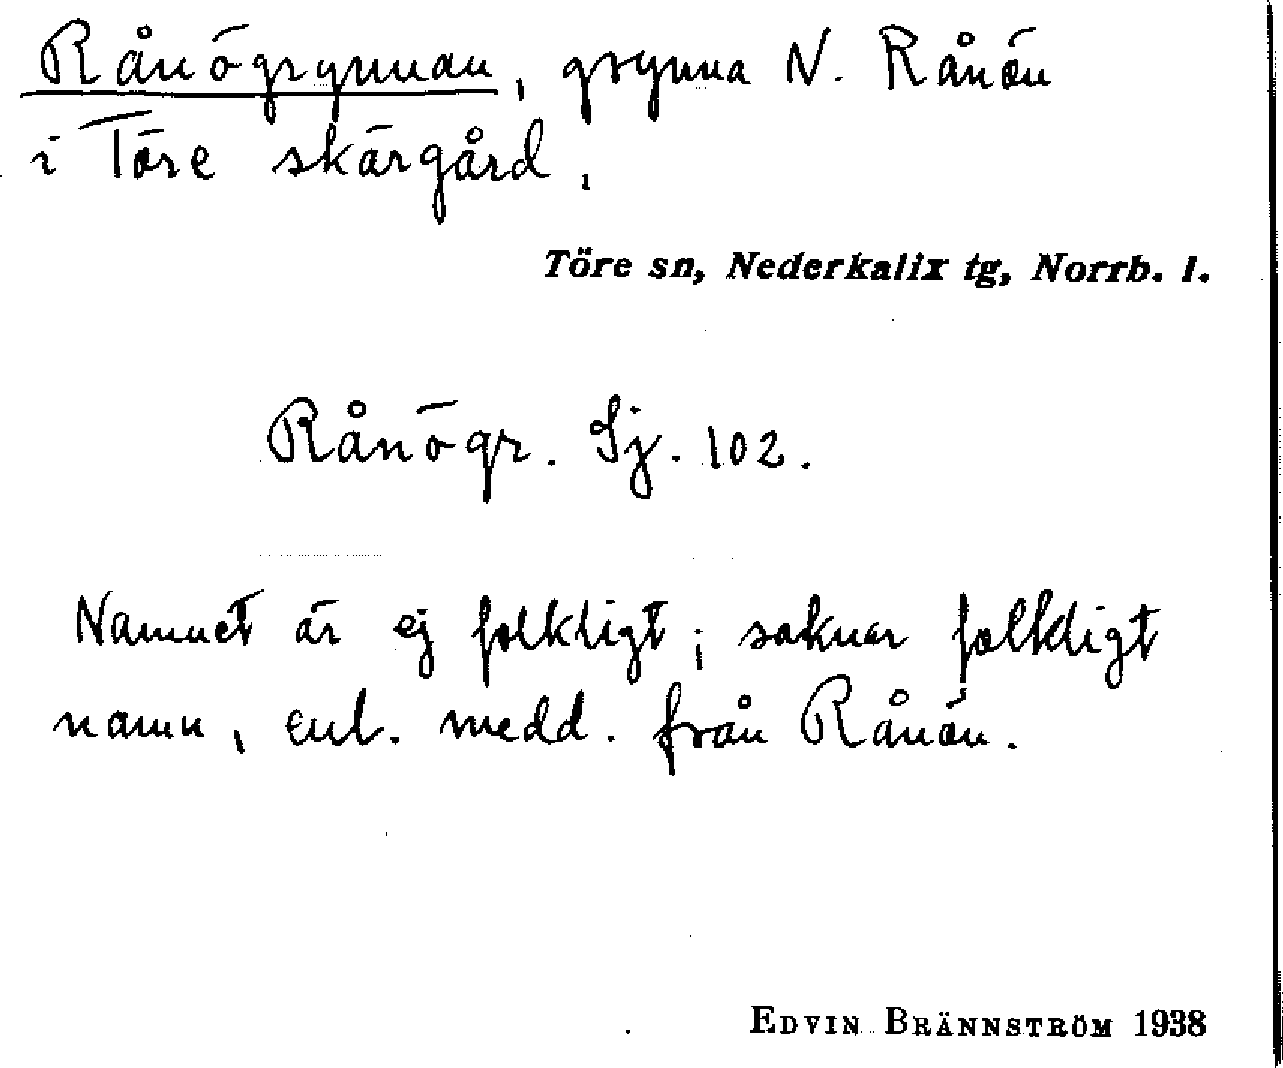 Rånögrynnan, grynna N. Rånön
i Töre skärgård.
Töre sn, Nederkalix tg, Norrb. l.
Rånögr. Sj. 102.
Namnet är ej folkligt; saknar folkligt
namn, enl. medd. från Rånön.
EDVIN BRÄNNSTRÖM 1938